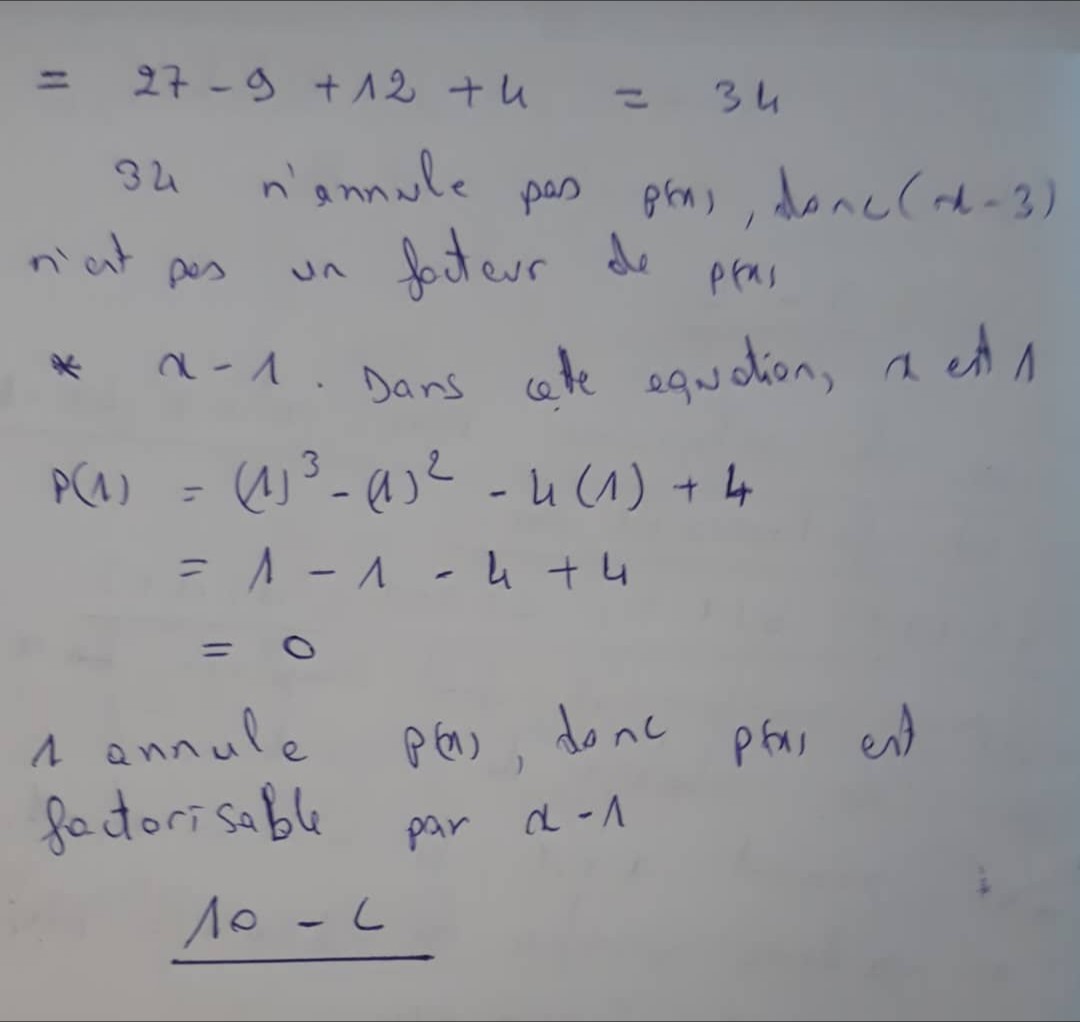 = 27 - 9 + 12 + 4 = 34
34 n'annule pas p(x), donc (x - 3)
n'est pas un facteur de p(x)
* x - 1. Dans cette equation, x est 1
P(1) = (1)³ - (1)² - 4(1) + 4
= 1 - 1 - 4 + 4
= 0
1 annule P(x), donc p(x) est
factorisable par x - 1
10 - C